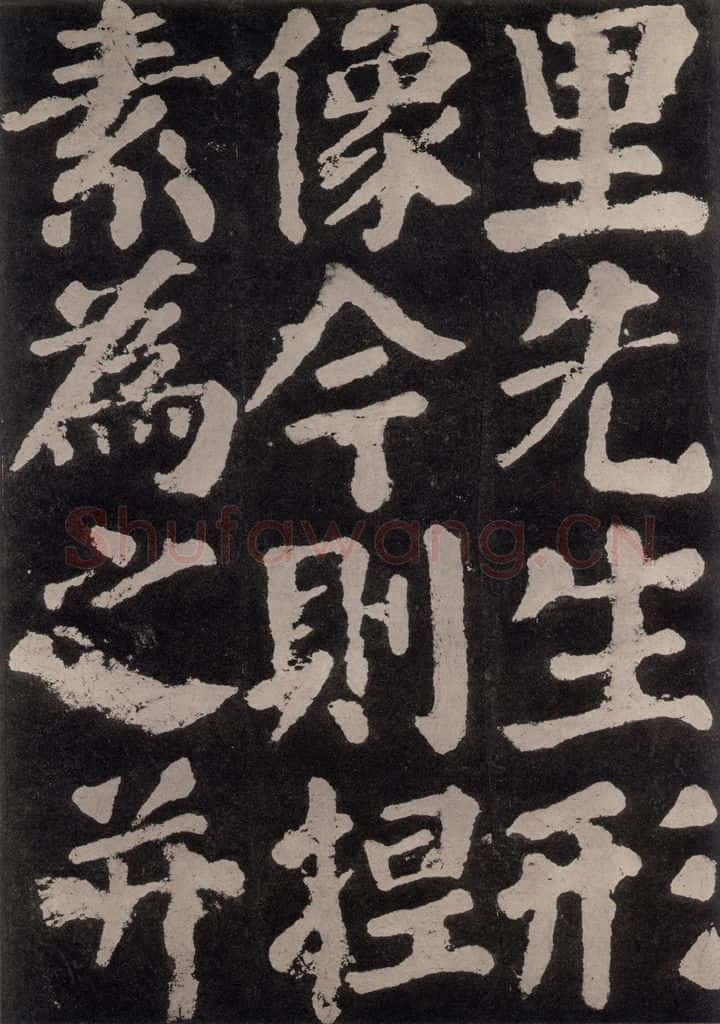 里先生形
像今則捏
素為之并
Shufawang.CN